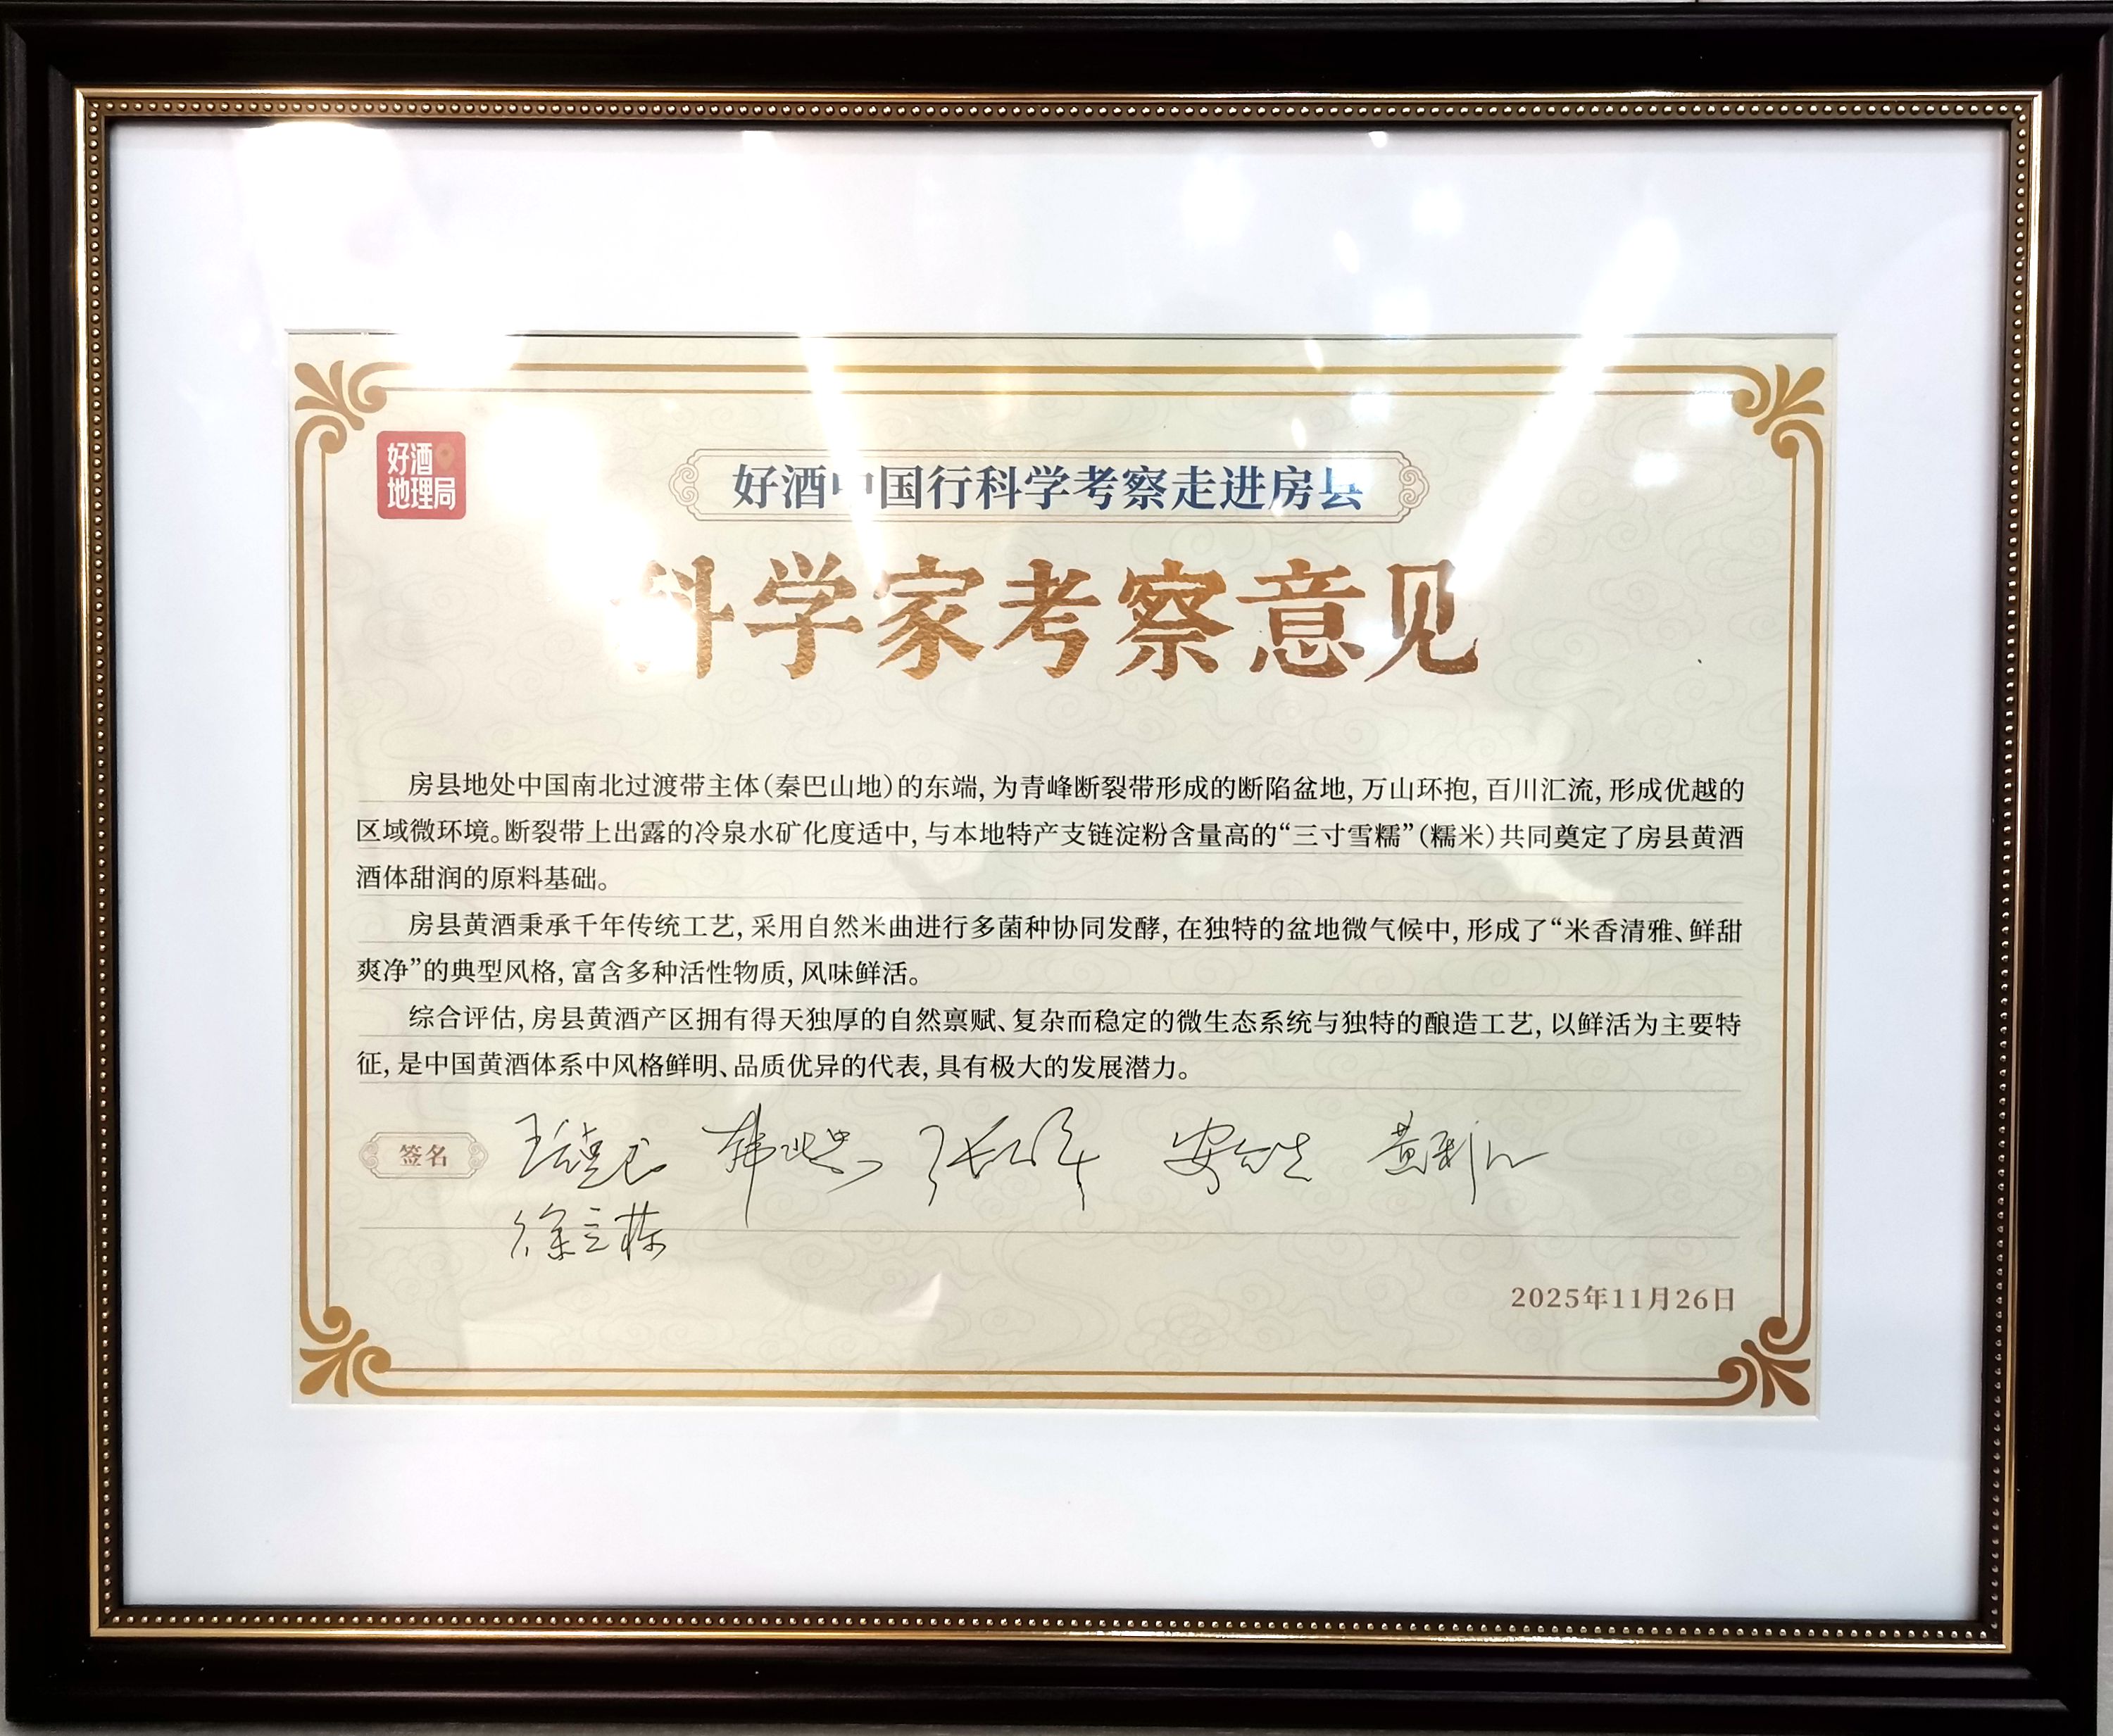 好酒
地理局
好酒中国行科学考察走进房县
科学家考察意见
房县地处中国南北过渡带主体(秦巴山地)的东端,为青峰断裂带形成的断陷盆地,万山环抱,百川汇流,形成优越的
区域微环境。断裂带上出露的冷泉水矿化度适中,与本地特产支链淀粉含量高的“三寸雪糯”(糯米)共同奠定了房县黄酒
酒体甜润的原料基础。
房县黄酒秉承千年传统工艺,采用自然米曲进行多菌种协同发酵,在独特的盆地微气候中,形成了“米香清雅、鲜甜
爽净”的典型风格,富含多种活性物质,风味鲜活。
综合评估,房县黄酒产区拥有得天独厚的自然禀赋、复杂而稳定的微生态系统与独特的酿造工艺,以鲜活为主要特
征,是中国黄酒体系中风格鲜明、品质优异的代表,具有极大的发展潜力。
签名
徐立栋
2025年11月26日